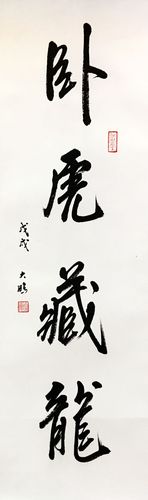 臥虎藏龍
戊戌 大鵬